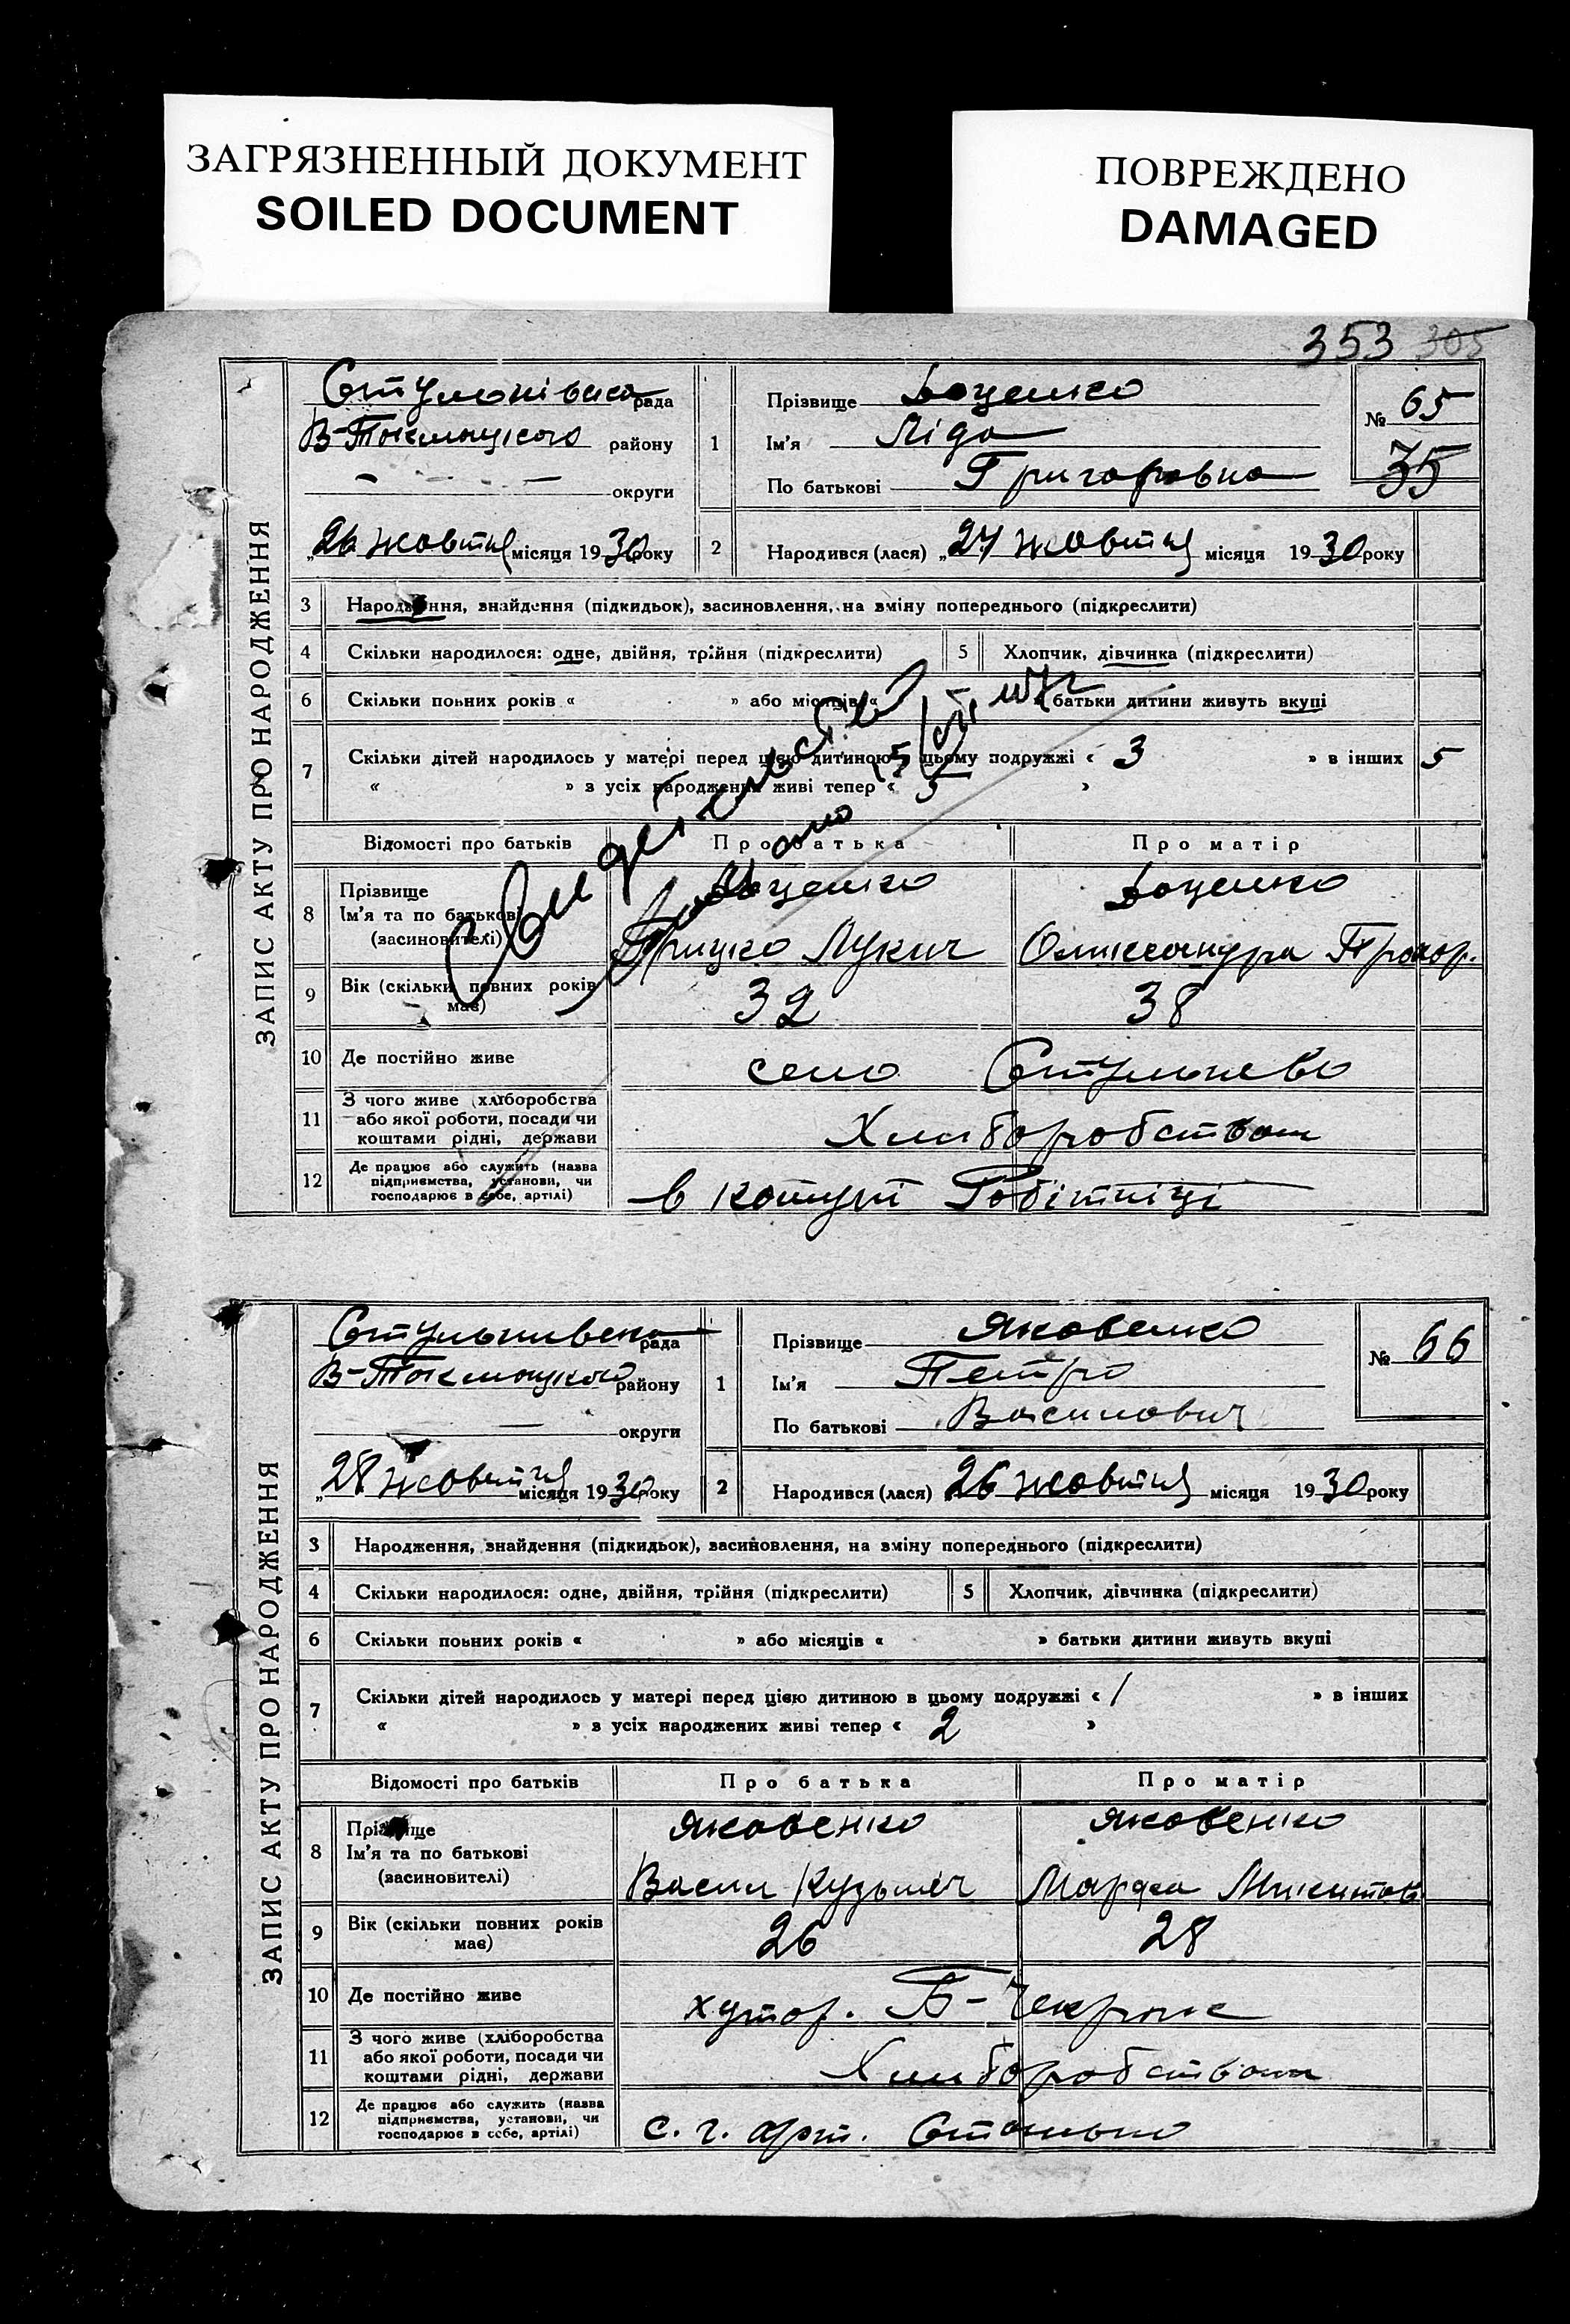 ЗАГРЯЗНЕННЫЙ ДОКУМЕНТ
SOILED DOCUMENT
ПОВРЕЖДЕНО
DAMAGED
353 305
ЗАПИС АКТУ ПРО НАРОДЖЕННЯ
рада
В-Токмацкого району
округи
„26 жовтня місяця 1930 року
1 Прізвище Доценко
Ім'я Ліда
По батькові Григоровна
№ 65
35
2 Народився (лася) „27 жовтня місяця 1930 року
3 Народження, знайдення (підкидьок), засиновлення, на зміну попереднього (підкреслити)
4 Скільки народилося: одне, двійня, трійня (підкреслити) 5 Хлопчик, дівчинка (підкреслити)
6 Скільки повних років « » або місяців « » батьки дитини живуть вкупі
7 Скільки дітей народилось у матері перед цією дитиною в цьому подружжі « 3 » в інших 5
« » з усіх народжених живі тепер « 5 »
Відомості про батьків Про батька Про матір
8 Прізвище Доценко Доценко
Ім'я та по батькові
(засиновителі) Грицко Лукич Олександра Прокор.
9 Вік (скільки повних років має) 32 38
10 Де постійно живе село Стульнево
11 З чого живе (хліборобства
або якої роботи, посади чи
коштами рідні, держави Хлиборобством
12 Де працює або служить (назва
підприємства, установи, чи
господарює в себе, артілі) в
ЗАПИС АКТУ ПРО НАРОДЖЕННЯ
Стульнивска рада
В-Токмацкого району
округи
„28 жовтня місяця 1930 року
1 Прізвище Яковенко
Ім'я Петро
По батькові Василович
№ 66
2 Народився (лася) 26 жовтня місяця 1930 року
3 Народження, знайдення (підкидьок), засиновлення, на зміну попереднього (підкреслити)
4 Скільки народилося: одне, двійня, трійня (підкреслити) 5 Хлопчик, дівчинка (підкреслити)
6 Скільки повних років « » або місяців « » батьки дитини живуть вкупі
7 Скільки дітей народилось у матері перед цією дитиною в цьому подружжі « 1 » в інших
« » з усіх народжених живі тепер « 2 »
Відомості про батьків Про батька Про матір
8 Прізвище Яковенко Яковенко
Ім'я та по батькові
(засиновителі) Васил Кузьмич Марфа Микитов
9 Вік (скільки повних років має) 26 28
10 Де постійно живе хутор. Б-Чекрак
11 З чого живе (хліборобства
або якої роботи, посади чи
коштами рідні, держави Хлиборобством
12 Де працює або служить (назва
підприємства, установи, чи
господарює в себе, артілі) с. г. арт.